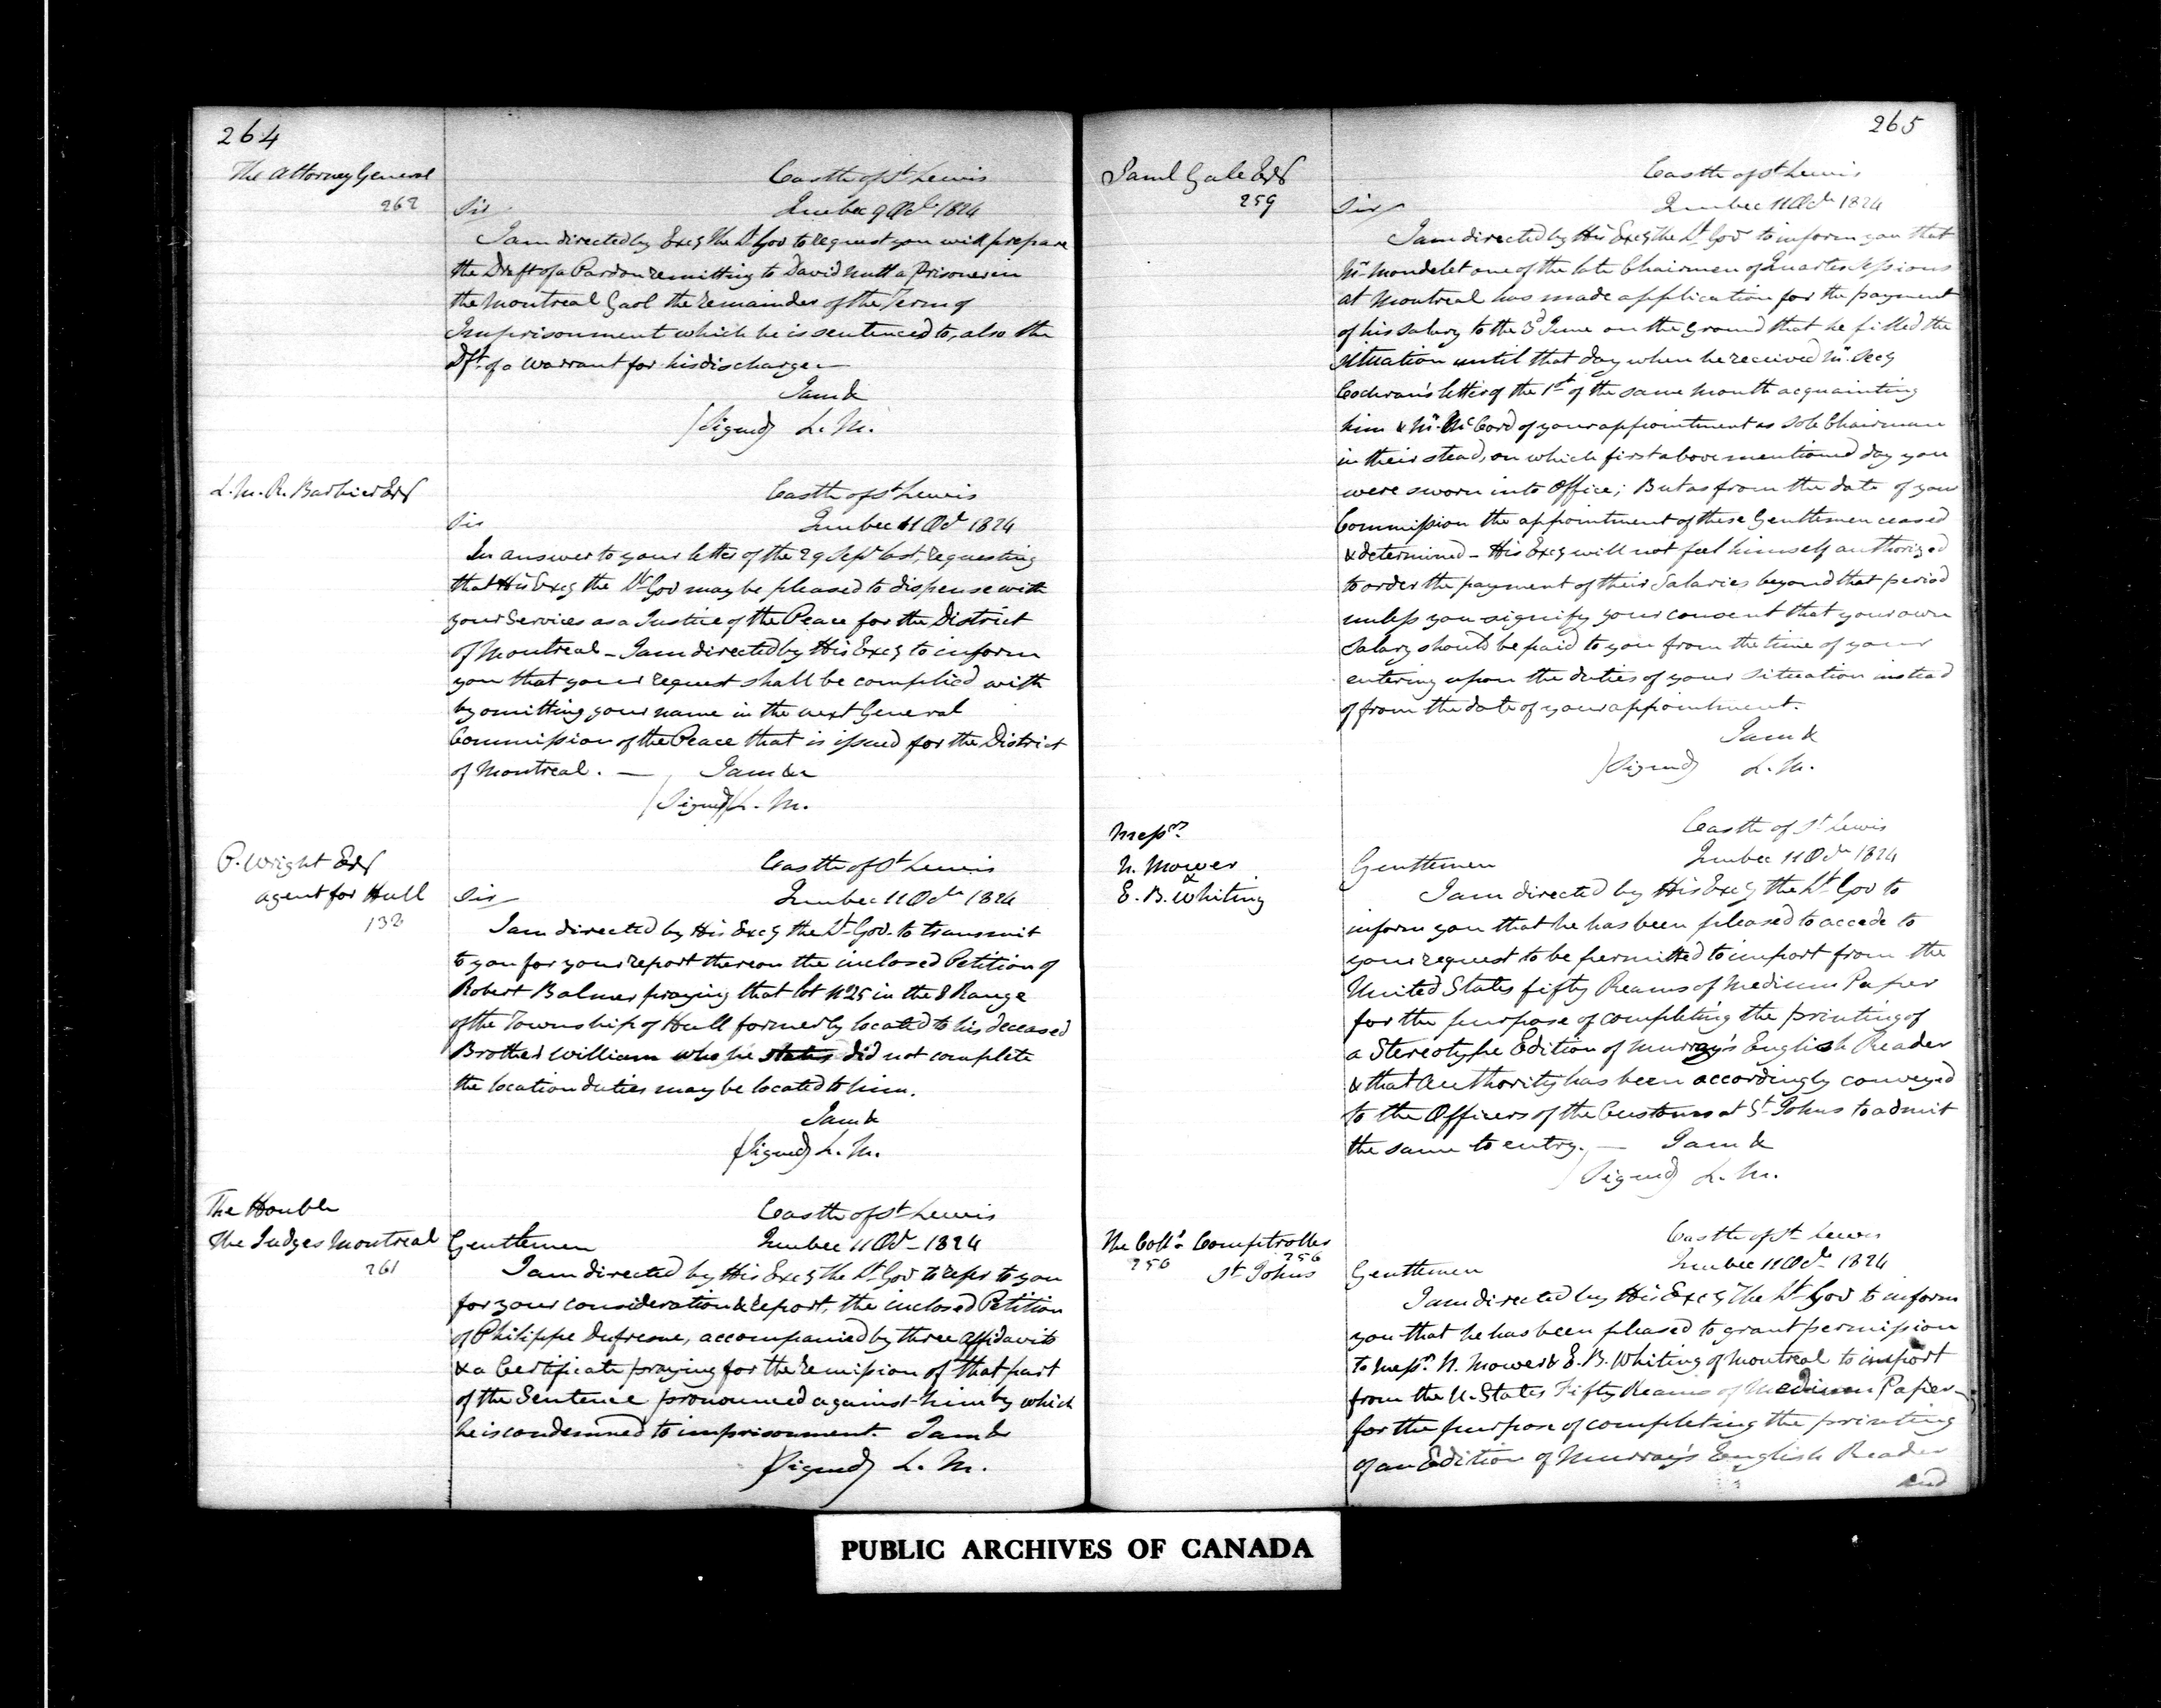 264
The Attorney General
262
Castle of St Lewis
Sir
Quebec 9 Octr 1824
I am directed by Excy the Lt Gov to request you will prepare
the Draft of a Pardon remitting to David Nutt a Prisoner in
the Montreal Gaol the remainder of the Term of
Imprisonment which he is sentenced to, also the
Dft. of a Warrant for his discharge.
I am &
(Signed) L. M.
L. M. R. Barbier Esqr
Castle of St Lewis
Sir
Quebec 11 Octr 1824
In answer to your letter of the 29 Septr last, requesting
that His Excy the Lt Gov may be pleased to dispense with
your Services as a Justice of the Peace for the District
of Montreal - I am directed by His Excy to inform
you that your request shall be complied with
by omitting your name in the next General
Commission of the Peace that is issued for the District
of Montreal. — I am &c
(Signed) L. M.
P. Wright Esqr
agent for Hull
132
Castle of St Lewis
Sir
Quebec 11 Octr 1824
I am directed by His Excy the Lt Gov. to transmit
to you for your report thereon the inclosed Petition of
Robert Balmer praying that lot No 25 in the 8 Range
of the Township of Hull formerly located to his deceased
Brother William who he states did not complete
the location duties may be located to him.
I am &
(Signed) L. M.
The Honble
The Judges Montreal
261
Castle of St Lewis
Gentlemen
Quebec 11 Octr - 1824
I am directed by His Excy the Lt Gov to refer to you
for your consideration & report, the inclosed Petition
of Philippe Dufresne, accompanied by three affidavits
& a Certificate praying for the remission of that part
of the Sentence pronounced against him by which
he is condemned to imprisonment. I am &
(Signed) L. M.
265
Saml Gale Esqr
259
Castle of St Lewis
Sir
Quebec 11 Octr 1824
I am directed by His Excy the Lt Gov to inform you that
Mr Mondelet one of the late Chairmen of Quarter Sessions
at Montreal has made application for the payment
of his salary to the 3d June on the ground that he filled the
situation until that day when he received Mr Secy
Cochran's letter of the 1st of the same Month acquainting
him & Mr McCord of your appointment as sole Chairman
in their stead, on which first above mentioned day you
were sworn into Office; But as from the date of your
Commission the appointment of these Gentlemen ceased
& determined - His Excy will not feel himself authorized
to order the payment of their Salaries beyond that period
unless you signify your consent that your own
Salary should be paid to you from the time of your
entering upon the duties of your situation instead
of from the date of your appointment.
I am &
(Signed) L. M.
Messrs
N. Mower
&
E. B. Whiting
Castle of St Lewis
Gentlemen
Quebec 11 Octr 1824
I am directed by His Excy the Lt Gov to
inform you that he has been pleased to accede to
your request to be permitted to import from the
United States fifty Reams of Medium Paper
for the purpose of completing the printing of
a Stereotype Edition of Murray's English Reader
& that Authority has been accordingly conveyed
to the Officers of the Customs at St Johns to admit
the same to entry. — I am &
(Signed) L. M.
The Collr & Comptroller
256 256
St Johns
Castle of St Lewis
Gentlemen
Quebec 11 Octr 1824
I am directed by His Excy the Lt Gov to inform
you that he has been pleased to grant permission
to Messrs N. Mower & E. B. Whiting of Montreal to import
from the U. States Fifty Reams of Medium Paper
for the purpose of completing the printing
of an Edition of Murray's English Reader
and
PUBLIC ARCHIVES OF CANADA